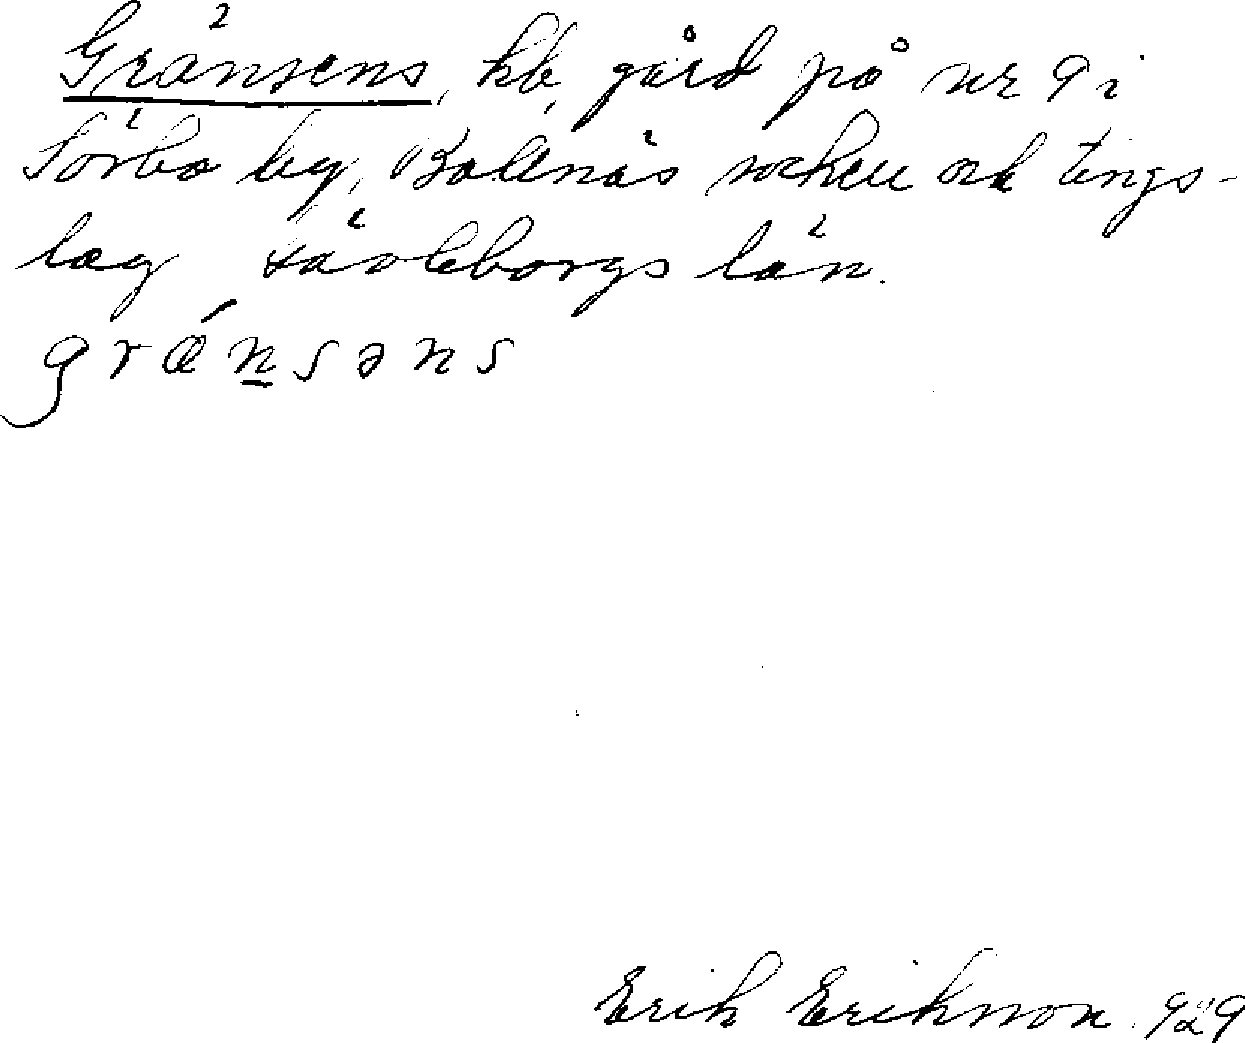 Gränsens, hb, gård på nr 9 i
Sörbo by, Bollnäs socken och tings-
lag Gävleborgs län.
grǽn̲səns
Erik Eriksson. 929